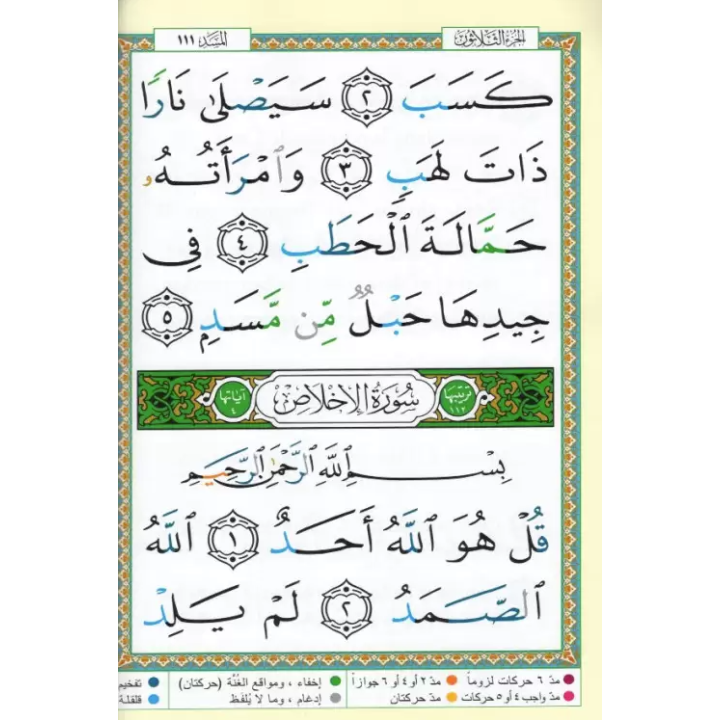 الجزء الثلاثون المسد ١١١
كَسَبَ ٢ سَيَصْلَىٰ نَارًا
ذَاتَ لَهَبٍ ٣ وَٱمْرَأَتُهُۥ
حَمَّالَةَ ٱلْحَطَبِ ٤ فِى
جِيدِهَا حَبْلٌ مِّن مَّسَدٍ ٥
ترتيبها ١١٢ سُورَةُ الإِخْلَاص آياتها ٤
بِسْمِ ٱللَّهِ ٱلرَّحْمَٰنِ ٱلرَّحِيمِ
قُلْ هُوَ ٱللَّهُ أَحَدٌ ١ ٱللَّهُ
ٱلصَّمَدُ ٢ لَمْ يَلِدْ
مدّ ٦ حركات لزوماً مدّ ٢ أو ٤ أو ٦ جوازاً إخفاء ، ومواقع الغُنَّة (حركتان) تفخيم
مدّ واجب ٤ أو ٥ حركات مدّ حركتان إدغام ، وما لا يُلفَظ قلقلة